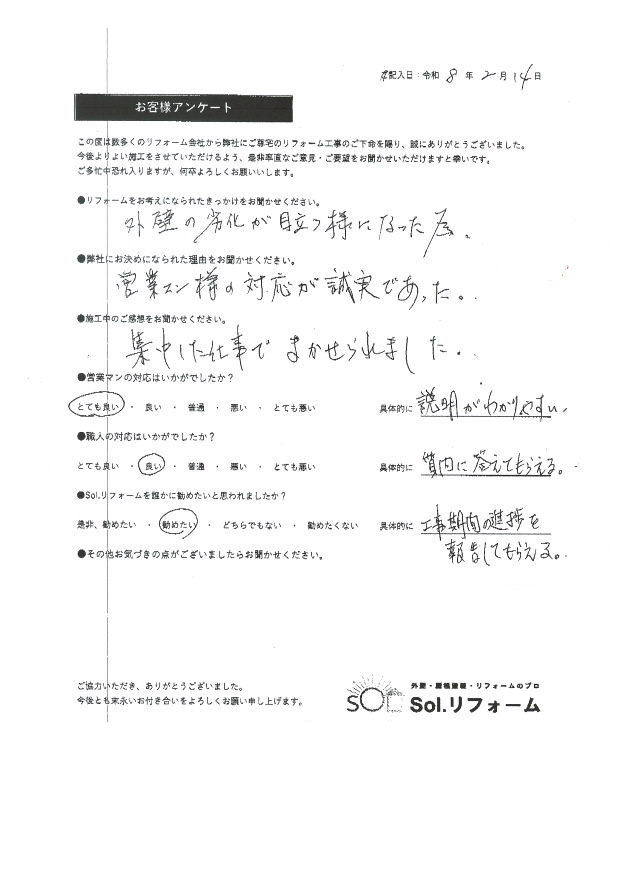 ご記入日：令和 8 年 2 月 14 日
お客様アンケート
この度は数多くのリフォーム会社から弊社にご尊宅のリフォーム工事のご下命を賜り、誠にありがとうございました。
今後よりよい施工をさせていただけるよう、是非率直なご意見・ご要望をお聞かせいただけますと幸いです。
ご多忙中恐れ入りますが、何卒よろしくお願いいします。
●リフォームをお考えになられたきっかけをお聞かせください。
外壁の劣化が目立つ様になった為。
●弊社にお決めになられた理由をお聞かせください。
営業マン様の対応が誠実であった。
●施工中のご感想をお聞かせください。
集中した仕事でまかせられました。
●営業マンの対応はいかがでしたか？
とても良い ・ 良い ・ 普通 ・ 悪い ・ とても悪い 具体的に 説明がわかりやすい。
●職人の対応はいかがでしたか？
とても良い ・ 良い ・ 普通 ・ 悪い ・ とても悪い 具体的に 質問に答えてもらえる。
●Sol.リフォームを誰かに勧めたいと思われましたか？
是非、勧めたい ・ 勧めたい ・ どちらでもない ・ 勧めたくない 具体的に 工事期間の進捗を
報告してもらえる。
●その他お気づきの点がございましたらお聞かせください。
ご協力いただき、ありがとうございました。
今後とも末永いお付き合いをよろしくお願い申し上げます。
外壁・屋根塗装・リフォームのプロ
SOL Sol.リフォーム